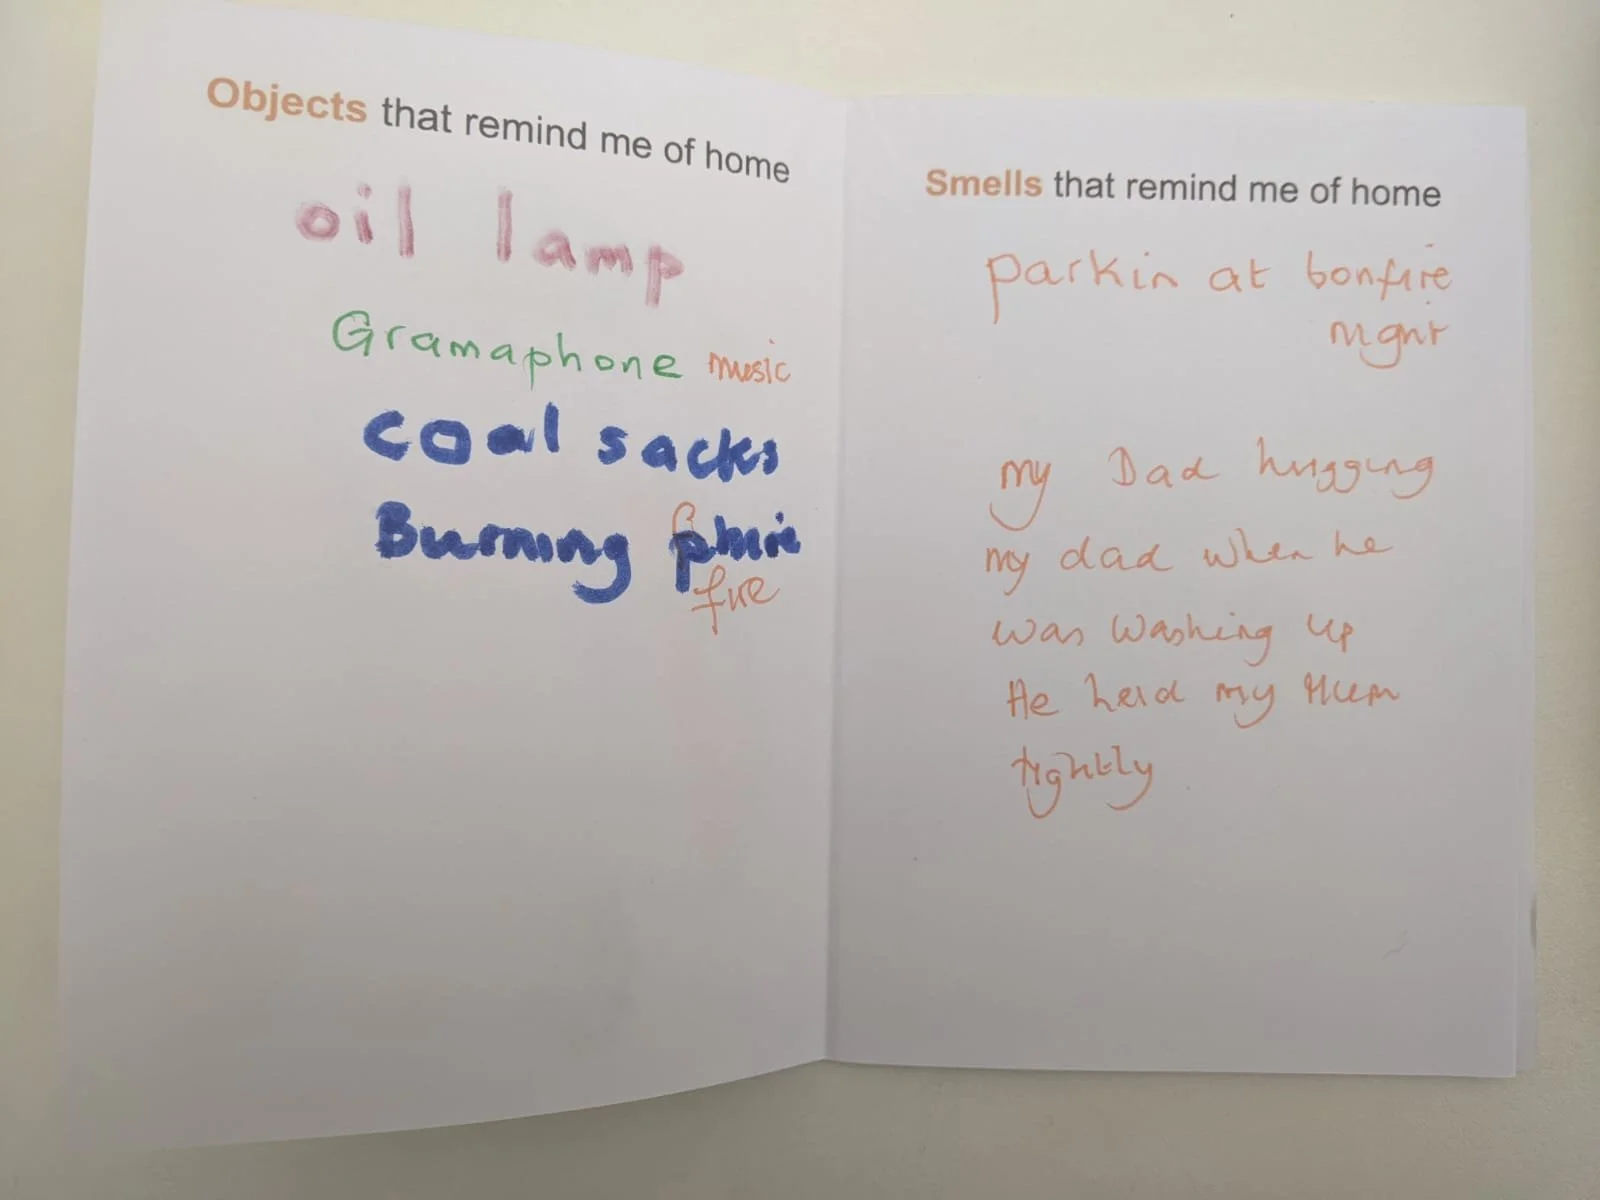 Objects that remind me of home
oil lamp
Gramaphone music
coal sacks
Burning
fire
Smells that remind me of home
parkin at bonfire
night
my Dad hugging
my dad when he
was washing up
He held my Mum
tightly